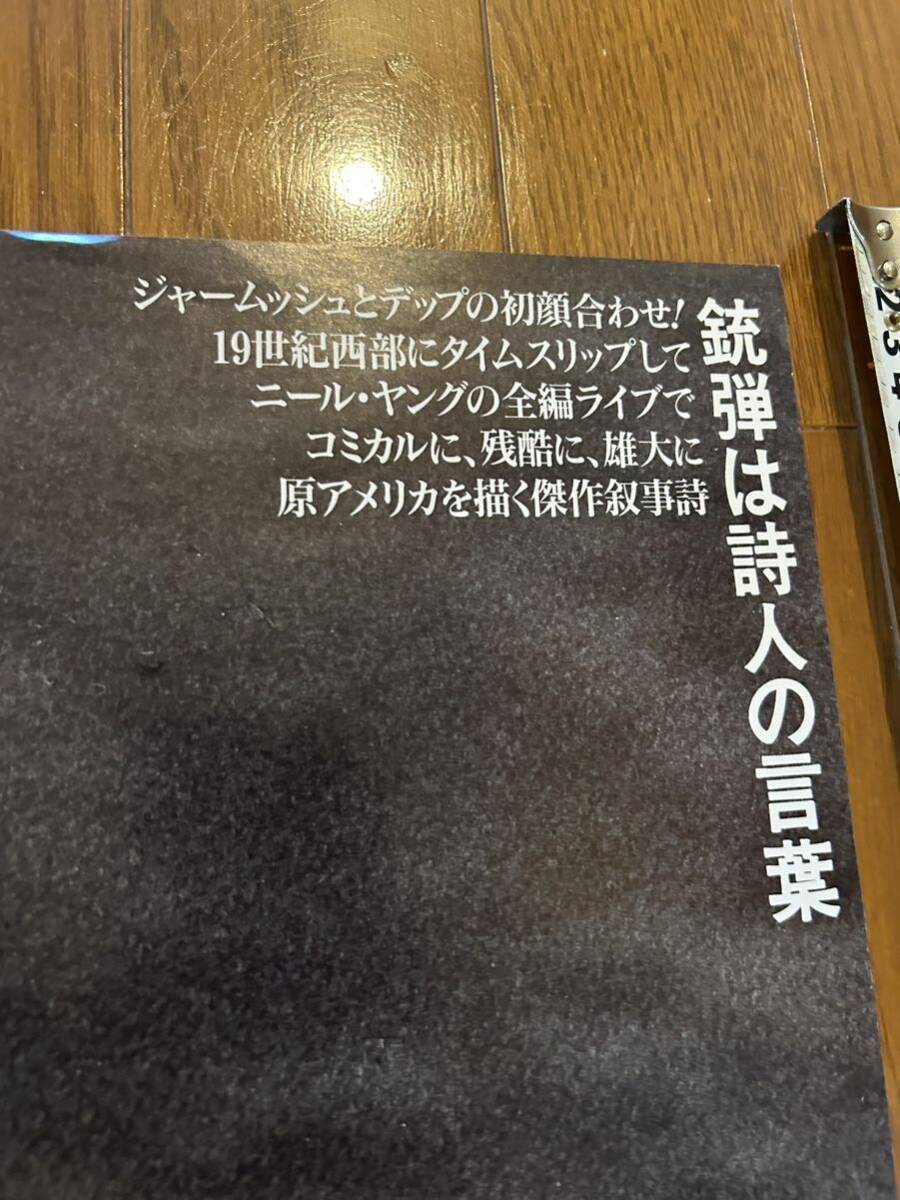 銃弾は詩人の言葉
ジャームッシュとデップの初顔合わせ!
19世紀西部にタイムスリップして
ニール・ヤングの全編ライブで
コミカルに、残酷に、雄大に
原アメリカを描く傑作叙事詩
2
3
4